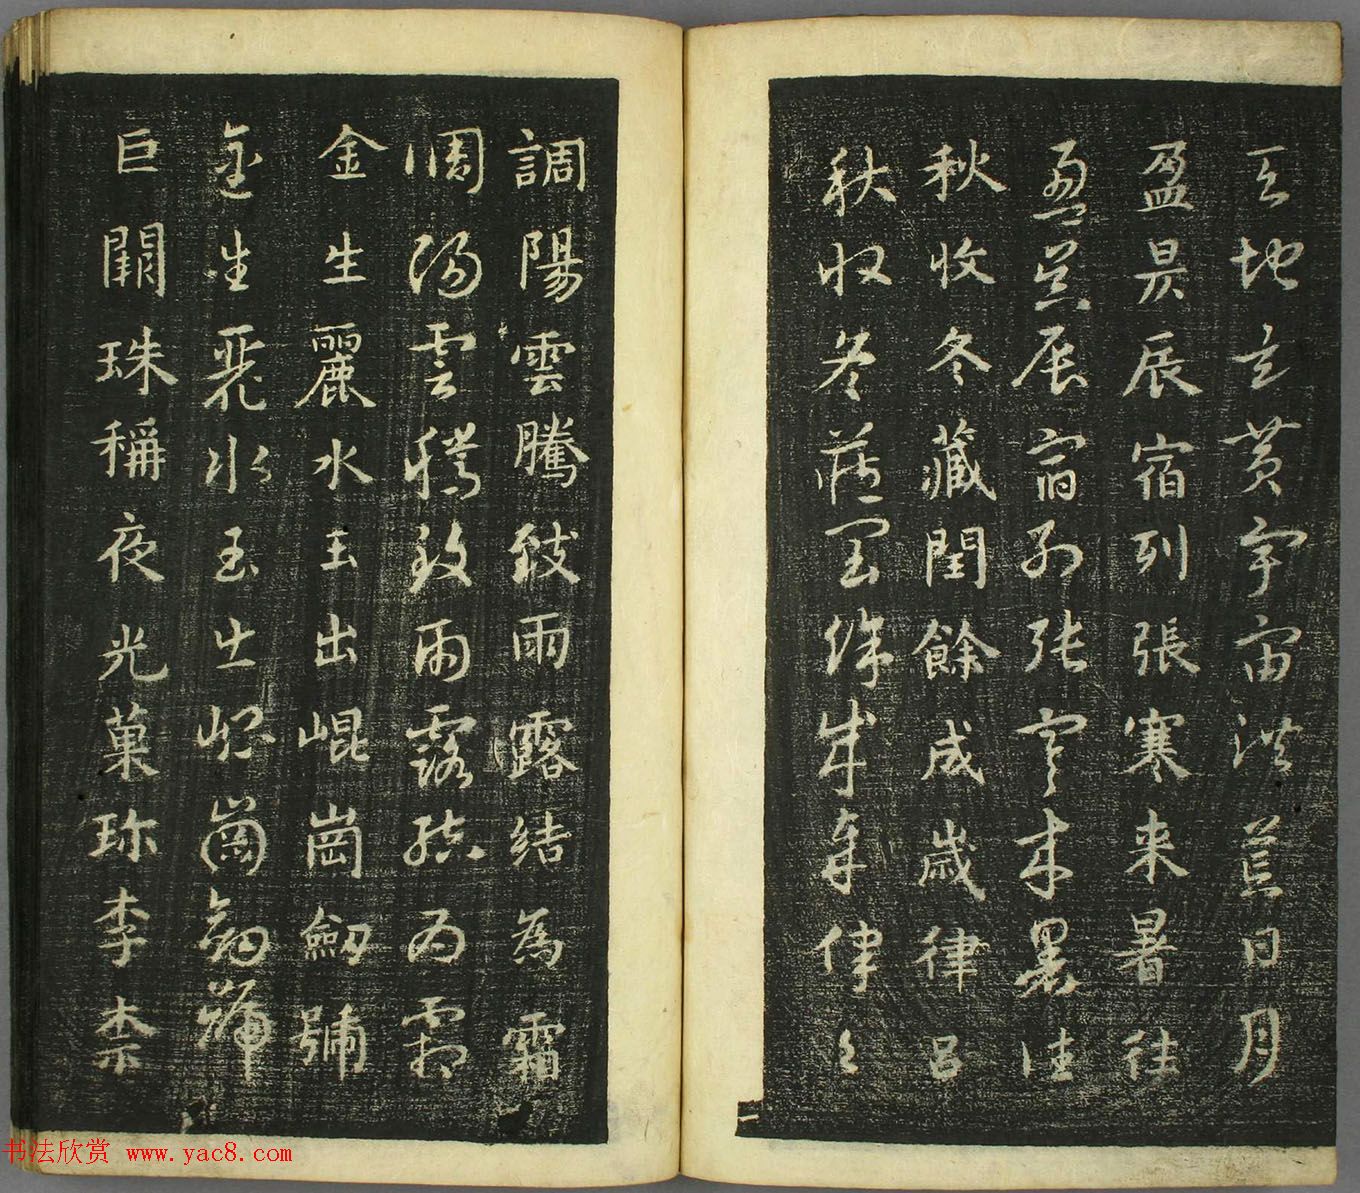 天地玄黄宇宙洪荒日月
盈昃辰宿列張寒来暑往
盈昃辰宿列張寒来暑往
秋收冬藏閏餘成歲律呂
秋收冬藏閏餘成歲律呂
一
調陽雲騰致雨露結為霜
調陽雲騰致雨露結為霜
金生麗水玉出崐崗劒號
金生麗水玉出崐崗劒號
巨闕珠稱夜光菓珍李柰
书法欣赏 www.yac8.com